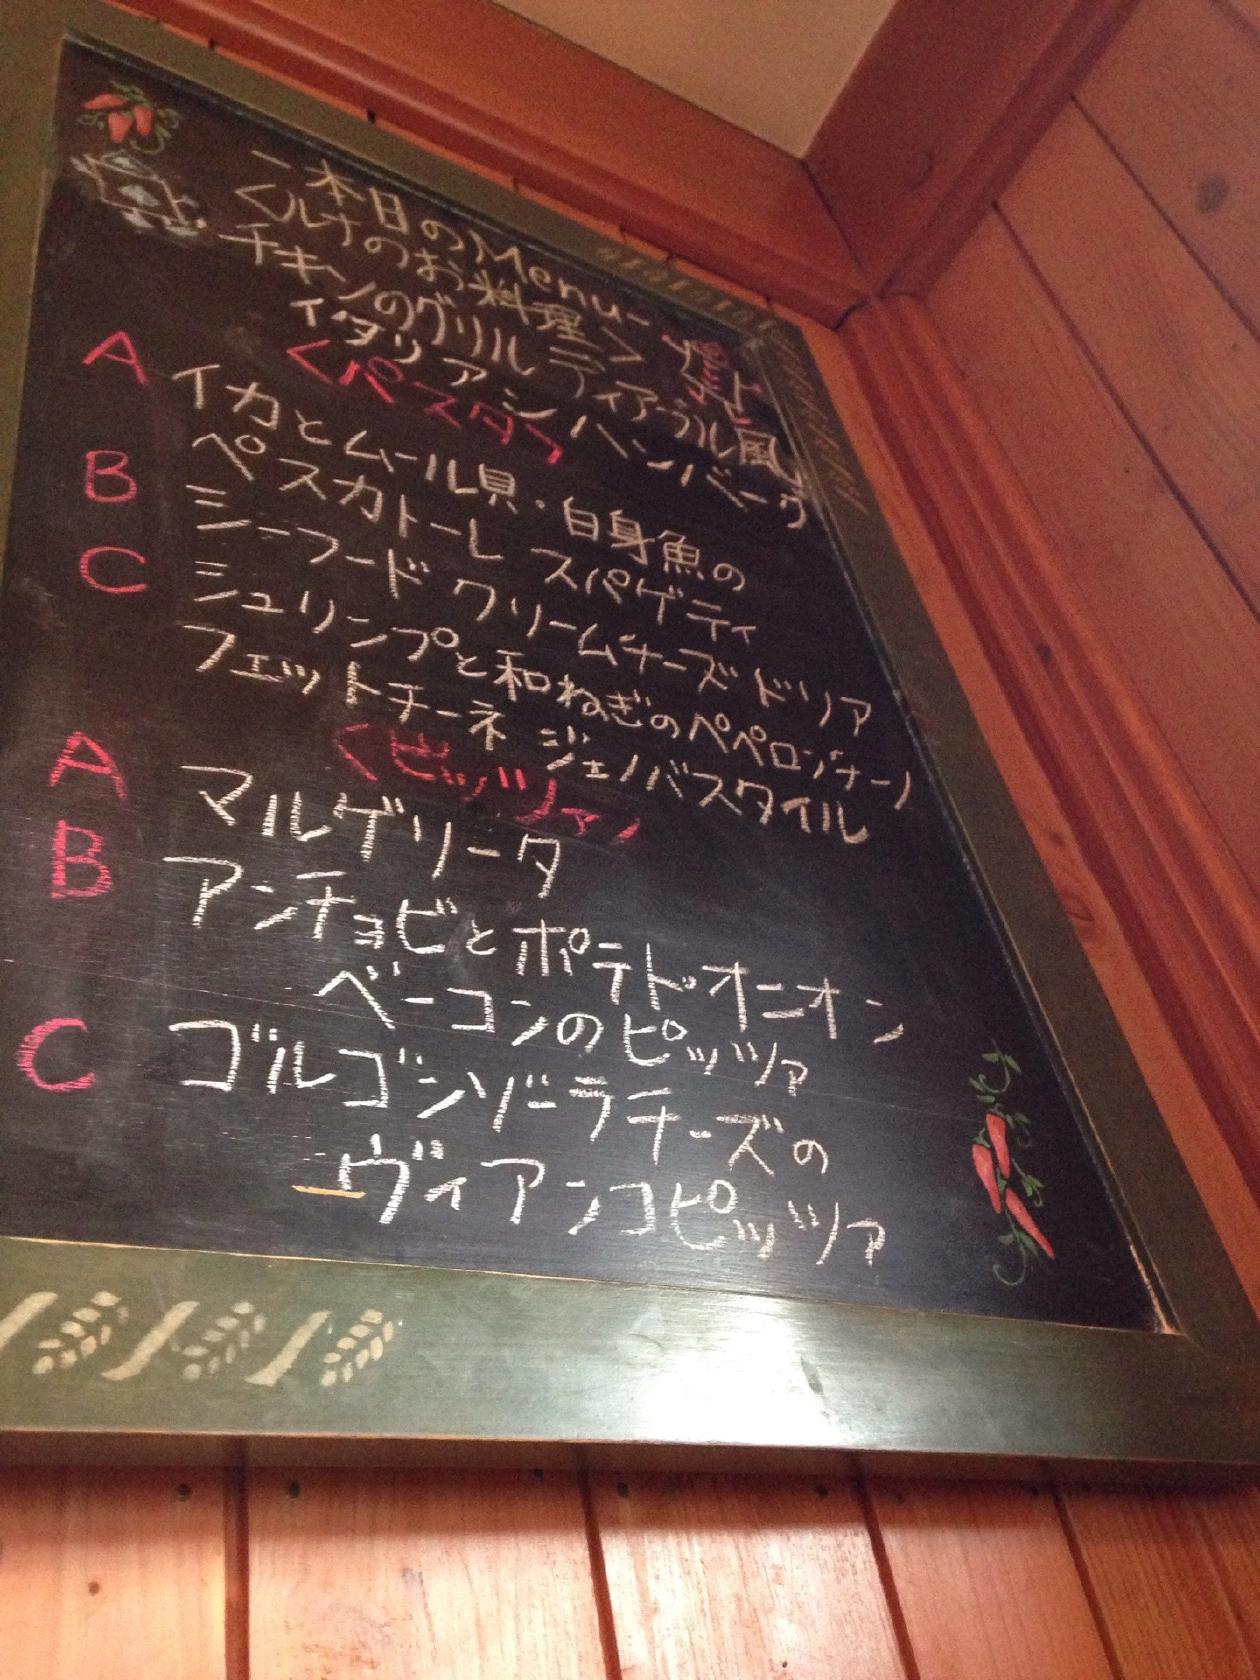 -本日のMenu-
<ルナのお料理>
チキンのグリル ディアブル風
イタリアンハンバーグ
<パスタ>
A イカとムール貝・白身魚の
ペスカトーレ スパゲティ
B シーフード クリームチーズ ドリア
C シュリンプと和ねぎのペペロンチーノ
フェットチーネ ジェノバスタイル
<ピッツァ>
A マルゲリータ
B アンチョビとポテトオニオン
ベーコンのピッツァ
C ゴルゴンゾーラチーズの
ヴィアンコピッツァ